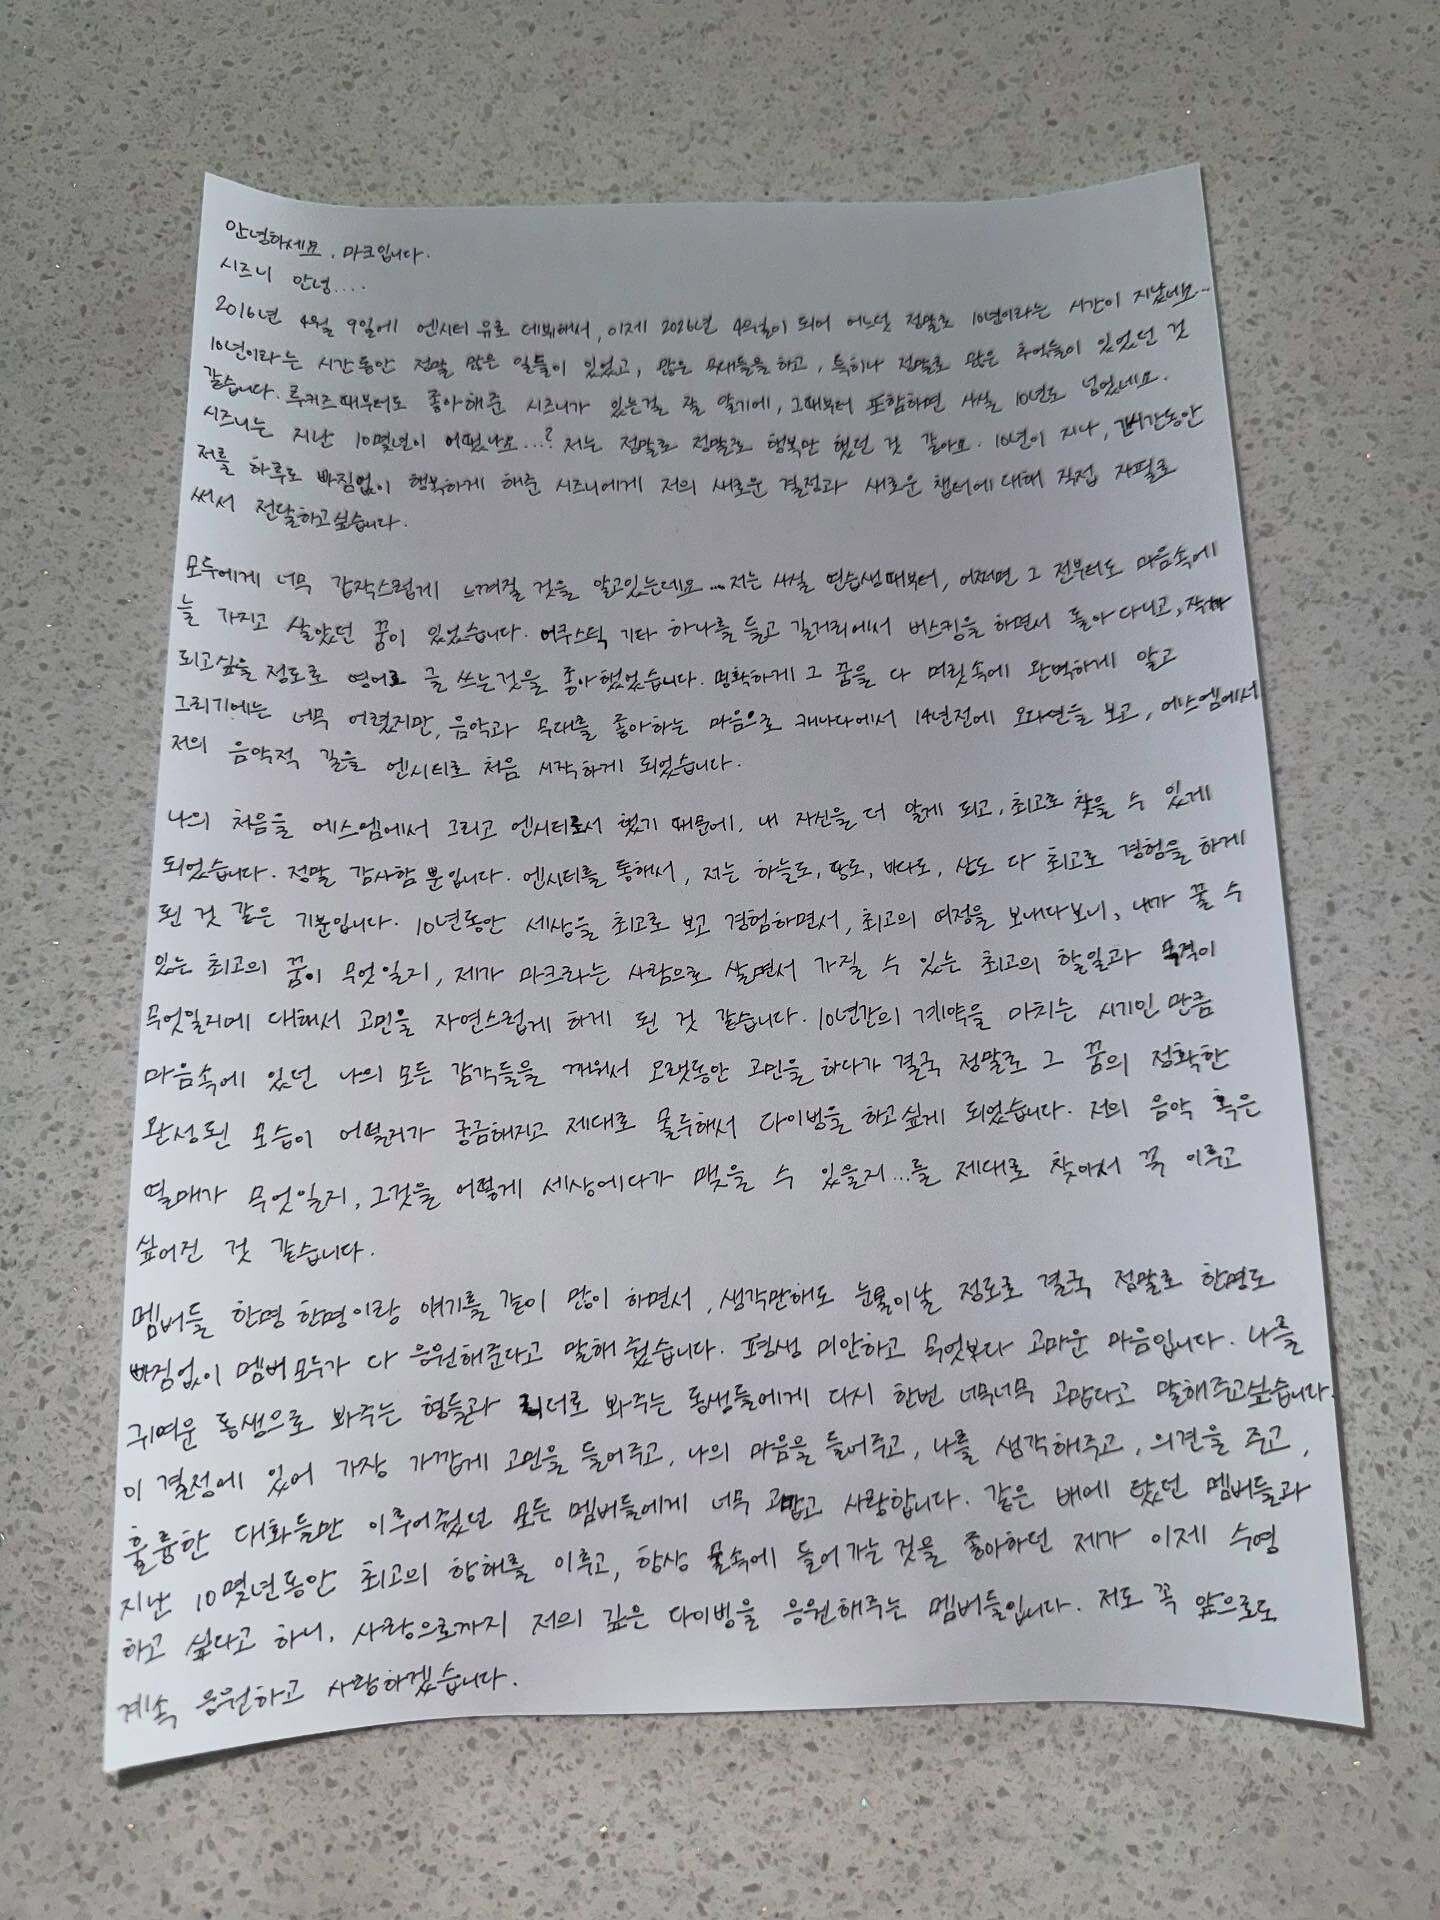 안녕하세요. 마크입니다.
시즈니 안녕....
2016년 4월 9일에 엔시티 유로 데뷔해서, 이제 2026년 4월이 되어 어느덧 정말로 10년이라는 시간이 지났네요...
10년이라는 시간동안 정말 많은 일들이 있었고, 많은 무대들을 하고, 특히나 정말로 많은 추억들이 있었던 것
같습니다. 루키즈때부터도 좋아해준 시즈니가 있는걸 잘 알기에, 그때부터 포함하면 사실 10년도 넘었네요.
시즈니는 지난 10몇년이 어땠나요...? 저는 정말로 정말로 행복만 했던 것 같아요. 10년이 지나, 긴시간동안
저를 하루도 빠짐없이 행복하게 해준 시즈니에게 저의 새로운 결정과 새로운 챕터에 대해 직접 자필로
써서 전달하고싶습니다.
모두에게 너무 갑작스럽게 느껴질 것을 알고있는데요... 저는 사실 연습생때부터, 어쩌면 그 전부터도 마음속에
늘 가지고 살았던 꿈이 있었습니다. 어쿠스틱 기타 하나를 들고 길거리에서 버스킹을 하면서 돌아다니고, 작가
되고싶을 정도로 영어로 글 쓰는것을 좋아했었습니다. 명확하게 그 꿈을 다 머릿속에 완벽하게 알고
그리기에는 너무 어렸지만, 음악과 무대를 좋아하는 마음으로 캐나다에서 14년전에 오디션을 보고, 에스엠에서
저의 음악적 길을 엔시티로 처음 시작하게 되었습니다.
나의 처음을 에스엠에서 그리고 엔시티로서 했기 때문에, 내 자신을 더 알게 되고, 최고로 찾을 수 있게
되었습니다. 정말 감사할 뿐입니다. 엔시티를 통해서, 저는 하늘도, 땅도, 바다도, 산도 다 최고로 경험을 하게
된 것 같은 기분입니다. 10년동안 세상을 최고로 보고 경험하면서, 최고의 여정을 보내다보니, 내가 꿀 수
있는 최고의 꿈이 무엇일지, 제가 마크라는 사람으로 살면서 가질 수 있는 최고의 할일과 목적이
무엇일지에 대해서 고민을 자연스럽게 하게 된 것 같습니다. 10년간의 계약을 마치는 시기인 만큼
마음속에 있던 나의 모든 감각들을 깨워서 오랫동안 고민을 하다가 결국 정말로 그 꿈의 정확한
완성된 모습이 어떨지가 궁금해지고 제대로 몰두해서 다이빙을 하고싶게 되었습니다. 저의 음악 혹은
열매가 무엇일지, 그것을 어떻게 세상에다가 맺을 수 있을지...를 제대로 찾아서 꼭 이루고
싶어진 것 같습니다.
멤버들 한명 한명이랑 얘기를 같이 많이 하면서, 생각만해도 눈물이날 정도로 결국 정말로 한명도
빠짐없이 멤버모두가 다 응원해준다고 말해 줬습니다. 평생 미안하고 무엇보다 고마운 마음입니다. 나를
귀여운 동생으로 봐주는 형들과 리더로 봐주는 동생들에게 다시 한번 너무너무 고맙다고 말해주고싶습니다.
이 결정에 있어 가장 가깝게 고민을 들어주고, 나의 마음을 들어주고, 나를 생각해주고, 의견을 주고,
훌륭한 대화들만 이루어줬던 모든 멤버들에게 너무 고맙고 사랑합니다. 같은 배에 탔던 멤버들과
지난 10몇년동안 최고의 항해를 이루고, 항상 물속에 들어가는것을 좋아하던 제가 이제 수영
하고 싶다고 하니, 사랑으로까지 저의 깊은 다이빙을 응원해주는 멤버들입니다. 저도 꼭 앞으로도
계속 응원하고 사랑하겠습니다.